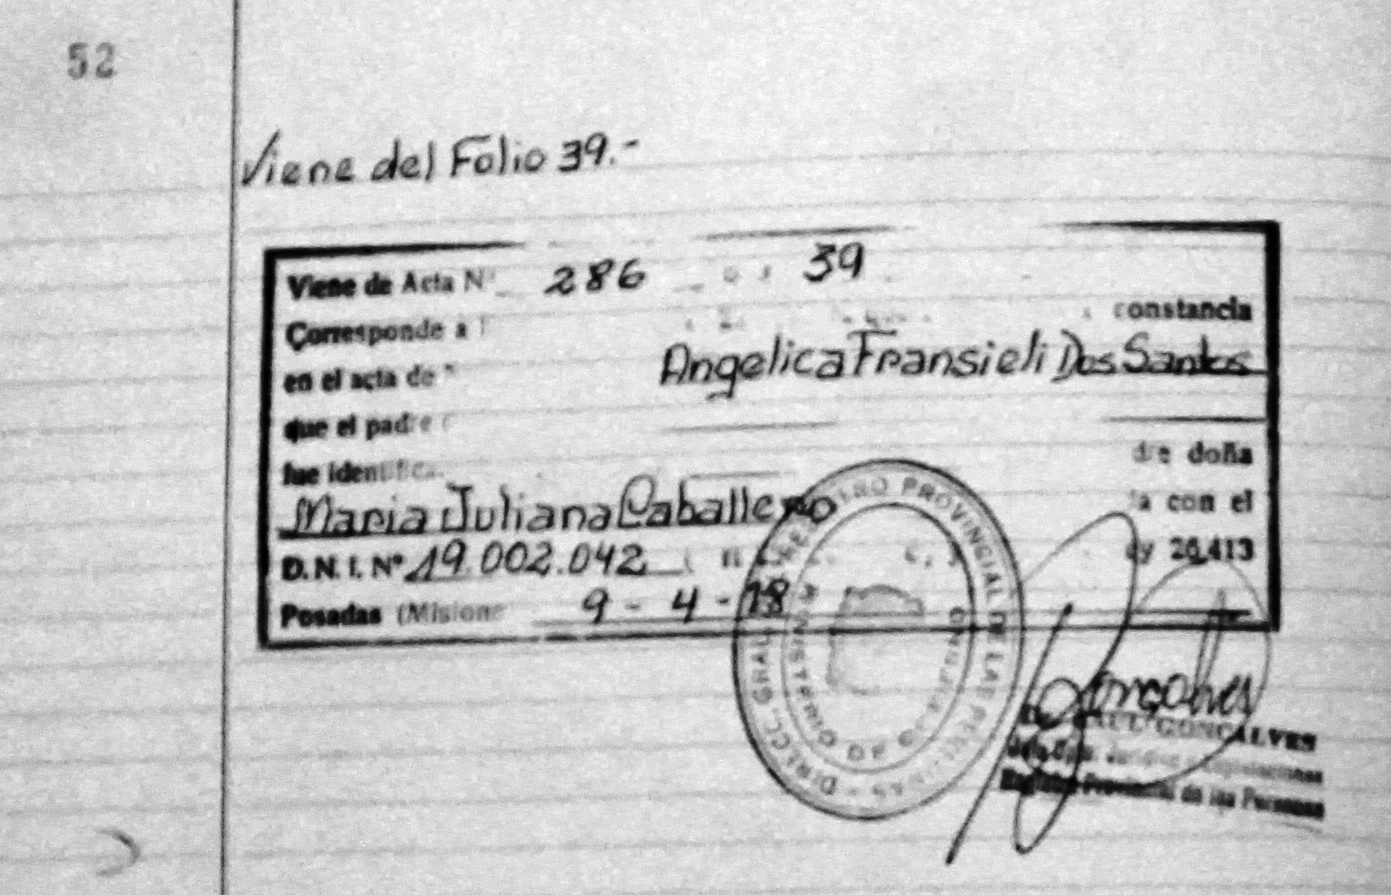 52
Viene del Folio 39.-
Viene de Acta Nº 286 39
Corresponde a constancia
en el acta de Angelica Fransieli Dos Santos
que el padre
fue identific dre doña
Maria Juliana Caballero a con el
D.N.I. Nº 19.002.042 ey 26.413
Posadas (Misione 9-4-18
DIRECC. GRAL. REGISTRO PROVINCIAL DE LAS PERSONAS
Goncalves
RAUL GONCALVES
Registro Provincial de las Personas